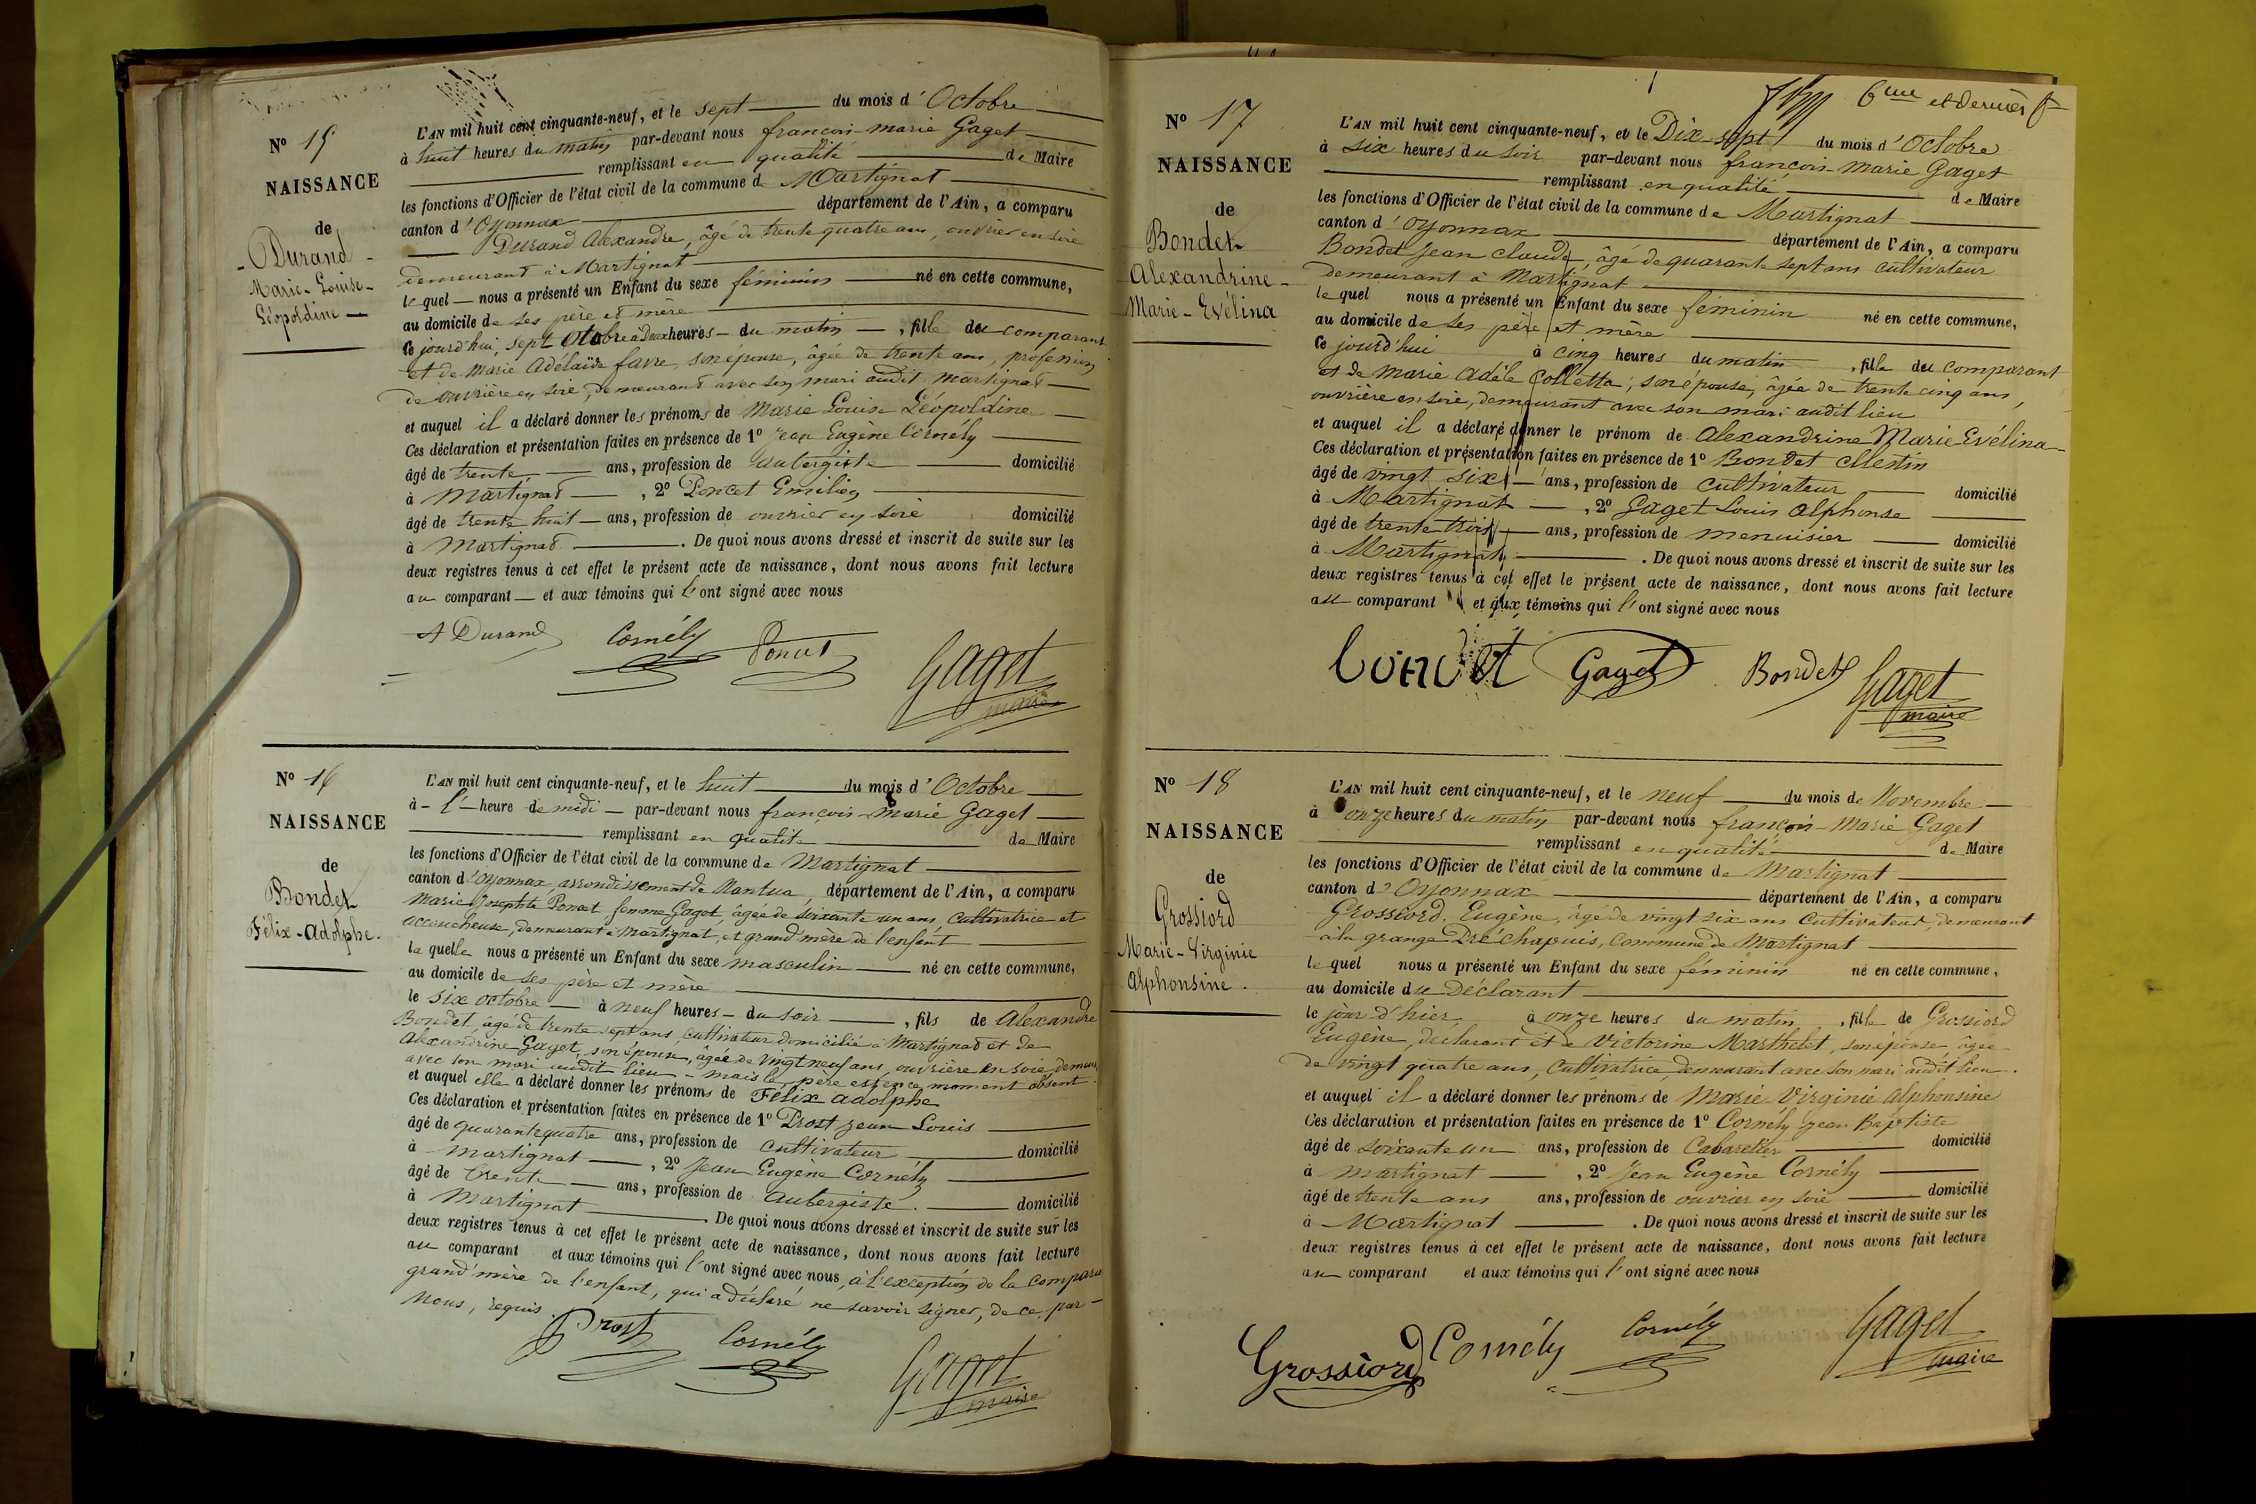 N° 15
NAISSANCE
de
Durand
Marie-Louise-
Léopoldine
L'AN mil huit cent cinquante-neuf, et le sept du mois d'Octobre
à huit heures du matin par-devant nous françois-marie Gaget
remplissant en qualité de Maire
les fonctions d'Officier de l'état civil de la commune de Martignat
canton d'Oyonnax département de l'Ain, a comparu
Durand Alexandre, âgé de trente quatre ans, ouvrier en soie
demeurant à Martignat
le quel nous a présenté un Enfant du sexe féminin né en cette commune,
au domicile de ses père et mère
Ce jourd'hui, sept Octobre à deux heures du matin, fille du comparant
et de Marie Adélaïde favre, son épouse, âgée de trente ans, profession
de ouvrière en soie, demeurant avec son mari audit Martignat
et auquel il a déclaré donner les prénoms de Marie Louise Léopoldine
Ces déclaration et présentation faites en présence de 1° Jean Eugène Cornély
âgé de trente ans, profession de aubergiste domicilié
à Martignat, 2° Poncet Emilien
âgé de trente huit ans, profession de ouvrier en soie domicilié
à Martignat. De quoi nous avons dressé et inscrit de suite sur les
deux registres tenus à cet effet le présent acte de naissance, dont nous avons fait lecture
au comparant et aux témoins qui l'ont signé avec nous
A Durand Cornély Poncet Gaget
maire
N° 16
NAISSANCE
de
Bondet
Félix-Adolphe.
L'AN mil huit cent cinquante-neuf, et le huit du mois d'Octobre
à l' heure de midi par-devant nous françois-marie Gaget
remplissant en qualité de Maire
les fonctions d'Officier de l'état civil de la commune de Martignat
canton d'Oyonnax, arrondissement de Nantua, département de l'Ain, a comparu
Marie Josephte Poncet femme Gaget, âgée de soixante un ans, Cultivatrice et
accoucheuse, demeurant à Martignat, et grand'mère de l'enfant
la quelle nous a présenté un Enfant du sexe masculin né en cette commune,
au domicile de ses père et mère
le six octobre à neuf heures du soir, fils de Alexandre
Bondet, âgé de trente sept ans, cultivateur domicilié à Martignat et de
Alexandrine Gaget, son épouse, âgée de vingt neuf ans, ouvrière en soie, demeur
avec son mari audit lieu - mais le père est en ce moment absent.
et auquel elle a déclaré donner les prénoms de Félix adolphe
Ces déclaration et présentation faites en présence de 1° Prost Jean Louis
âgé de quarante quatre ans, profession de cultivateur domicilié
à Martignat, 2° Jean Eugène Cornély
âgé de trente ans, profession de aubergiste. domicilié
à Martignat. De quoi nous avons dressé et inscrit de suite sur les
deux registres tenus à cet effet le présent acte de naissance, dont nous avons fait lecture
au comparant et aux témoins qui l'ont signé avec nous, à l'exception de la compara
grand'mère de l'enfant, qui a déclaré ne savoir signer, de ce par
Nous, requis.
Prost Cornély Gaget
maire
6me et dernier f
N° 17
NAISSANCE
de
Bondet
Alexandrine-
Marie-Evélina
L'AN mil huit cent cinquante-neuf, et le Dix-sept du mois d'Octobre
à six heures du soir par-devant nous françois-Marie Gaget
remplissant en qualité de Maire
les fonctions d'Officier de l'état civil de la commune de Martignat
canton d'Oyonnax département de l'Ain, a comparu
Bondet Jean Claude, âgé de quarante sept ans cultivateur
demeurant à Martignat
le quel nous a présenté un Enfant du sexe féminin né en cette commune,
au domicile de ses père et mère
Ce jourd'hui à cinq heures du matin, fille du comparant
et de Marie Adèle Colletta, son épouse, âgée de trente cinq ans,
ouvrière en soie, demeurant avec son mari audit lieu
et auquel il a déclaré donner le prénom de Alexandrine Marie Evélina
Ces déclaration et présentation faites en présence de 1° Bondet Clestin
âgé de vingt six ans, profession de cultivateur domicilié
à Martignat, 2° Gaget Louis Alphonse
âgé de trente trois ans, profession de menuisier domicilié
à Martignat. De quoi nous avons dressé et inscrit de suite sur les
deux registres tenus à cet effet le présent acte de naissance, dont nous avons fait lecture
au comparant et aux témoins qui l'ont signé avec nous
bondet Gaget Bondet Gaget
maire
N° 18
NAISSANCE
de
Grossiord
Marie-Virginie
Alphonsine.
L'AN mil huit cent cinquante-neuf, et le neuf du mois de Novembre
à onze heures du matin par-devant nous françois-Marie Gaget
remplissant en qualité de Maire
les fonctions d'Officier de l'état civil de la commune de Martignat
canton d'Oyonnax département de l'Ain, a comparu
Grossiord Eugène, âgé de vingt six ans Cultivateur, demeurant
à la grange Pré chapuis, commune de Martignat
le quel nous a présenté un Enfant du sexe féminin né en cette commune,
au domicile du Déclarant
le jour d'hier à onze heures du matin, fille de Grossiord
Eugène, déclarant et de Victorine Marthelet, son épouse âgée
de vingt quatre ans, Cultivatrice, demeurant avec son mari audit lieu.
et auquel il a déclaré donner les prénoms de Marie Virginie Alphonsine
Ces déclaration et présentation faites en présence de 1° Cornély Jean Baptiste
âgé de soixante un ans, profession de Cabaretier domicilié
à Martignat, 2° Jean Eugène Cornély
âgé de trente ans ans, profession de ouvrier en soie domicilié
à Martignat. De quoi nous avons dressé et inscrit de suite sur les
deux registres tenus à cet effet le présent acte de naissance, dont nous avons fait lecture
au comparant et aux témoins qui l'ont signé avec nous
Grossiord Cornély Cornély Gaget
maire